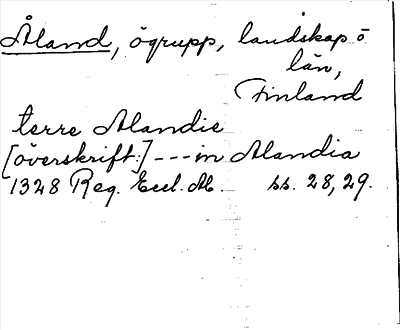 Åland, ögrupp, landskap o
län,
Finland
terre Alandie
[överskrift:] --- in Alandia
1328 Reg. Eccl. Ab. ss. 28, 29.